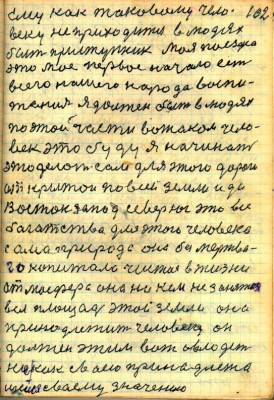 ему как таковому чело- 102.
веку не приходится в людях
быть притупник моя поезка
это мое первое начало ст
всего нашего народа воспи-
тания я должен быть в людях
по этой части в таком чело-
век это буду я начинат
это делот сам для этого дороги
открытои по всей земли иди
Восток запод север юг это все
богатства для этого человека
сама природа она бы мертва-
го копитало чистая в жизни
атмосфера она ни кем не занятоя
вся площадь этой земли она
принодлежит человеку он
должен этим вот овлодет
как своею принадлежа
сваему значению